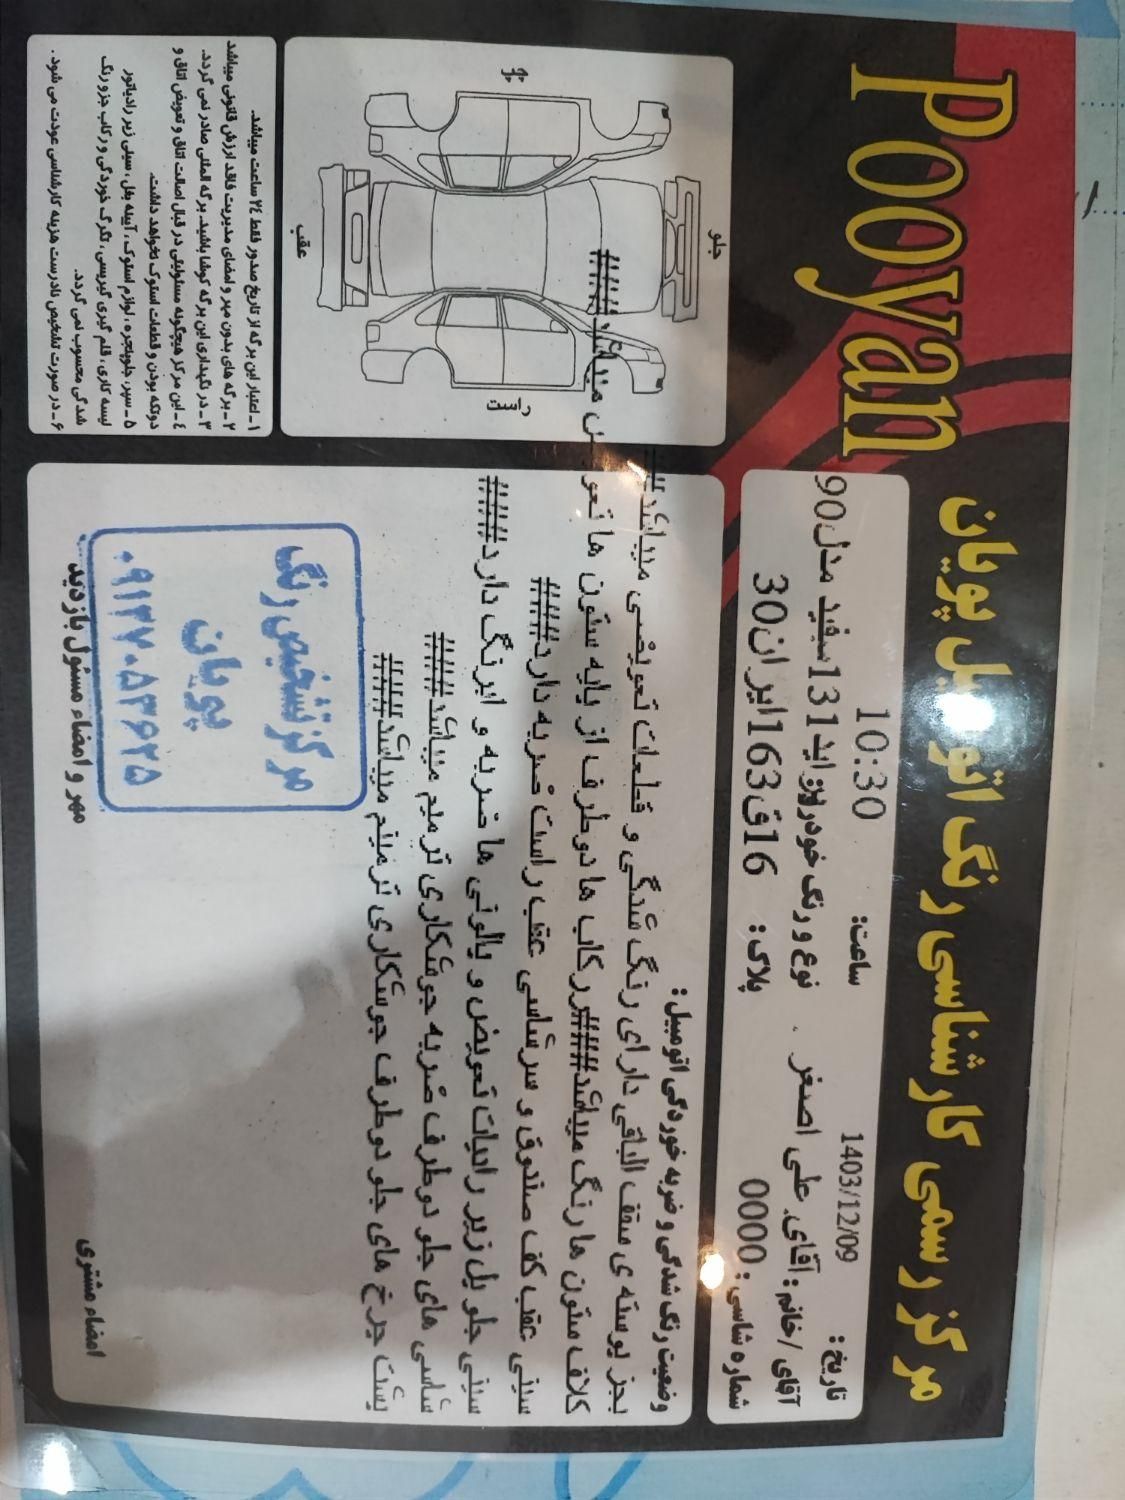 Pooyan
مرکز رسمی کارشناسی رنگ اتومبیل پویان
تاریخ: 1403/12/09
ساعت: 10:30
آقای /خانم: آقای علی اصغر
نوع و رنگ خودرو: پراید131سفید مدل90
شماره شاسی: 0000
پلاک: 16ق163ایران30
وضعیت رنگ شدگی و ضربه خوردگی اتومبیل:
بجز پوسته ی سقف الباقی دارای رنگ شدگی و قطعات تعویضی میباشد###
کلاف ستون ها رنگ میباشد###رکاب ها دوطرف از پایه ستون ها میباشد###
سینی عقب کف صندوق و سرشاسی عقب راست ضربه دارد###
سینی جلو پل زیر رادیات تعویض و پالونی ها ضربه و ابرنگ دارد###
شاسی های جلو دوطرف ضربه جوشکاری ترمیم میباشد###
پشت چرخ های جلو دوطرف جوشکاری ترمیم میباشد###
امضاء مشتری
مهر و امضاء مسئول بازدید
مرکز تشخیص رنگ
پویان
۰۹۱۲۷۰۵۳۶۲۵
چپ
جلو
عقب
راست
۱ـ اعتبار این برگه از تاریخ صدور فقط ۲۴ ساعت میباشد.
۲ـ برگه های بدون مهر و امضای مدیریت فاقد ارزش قانونی میباشد
۳ـ در نگهداری این برگه کوشا باشید. برگه المثنی صادر نمی گردد.
۴ـ این مرکز هیچگونه مسئولیتی در قبال اصالت اتاق و تعویض اتاق و
دوتکه بودن و قطعات استوک نخواهد داشت.
۵ـ سپر، جلوپنجره، لوازم استوک، آیینه بغل، سینی زیر رادیاتور
لیسه کاری، قلم گیری گیریسی، تگرگ خوردگی و رکاب جزو رنگ
شدگی محسوب نمی گردد.
۶ـ در صورت تشخیص نادرست هزینه کارشناسی عودت می شود.